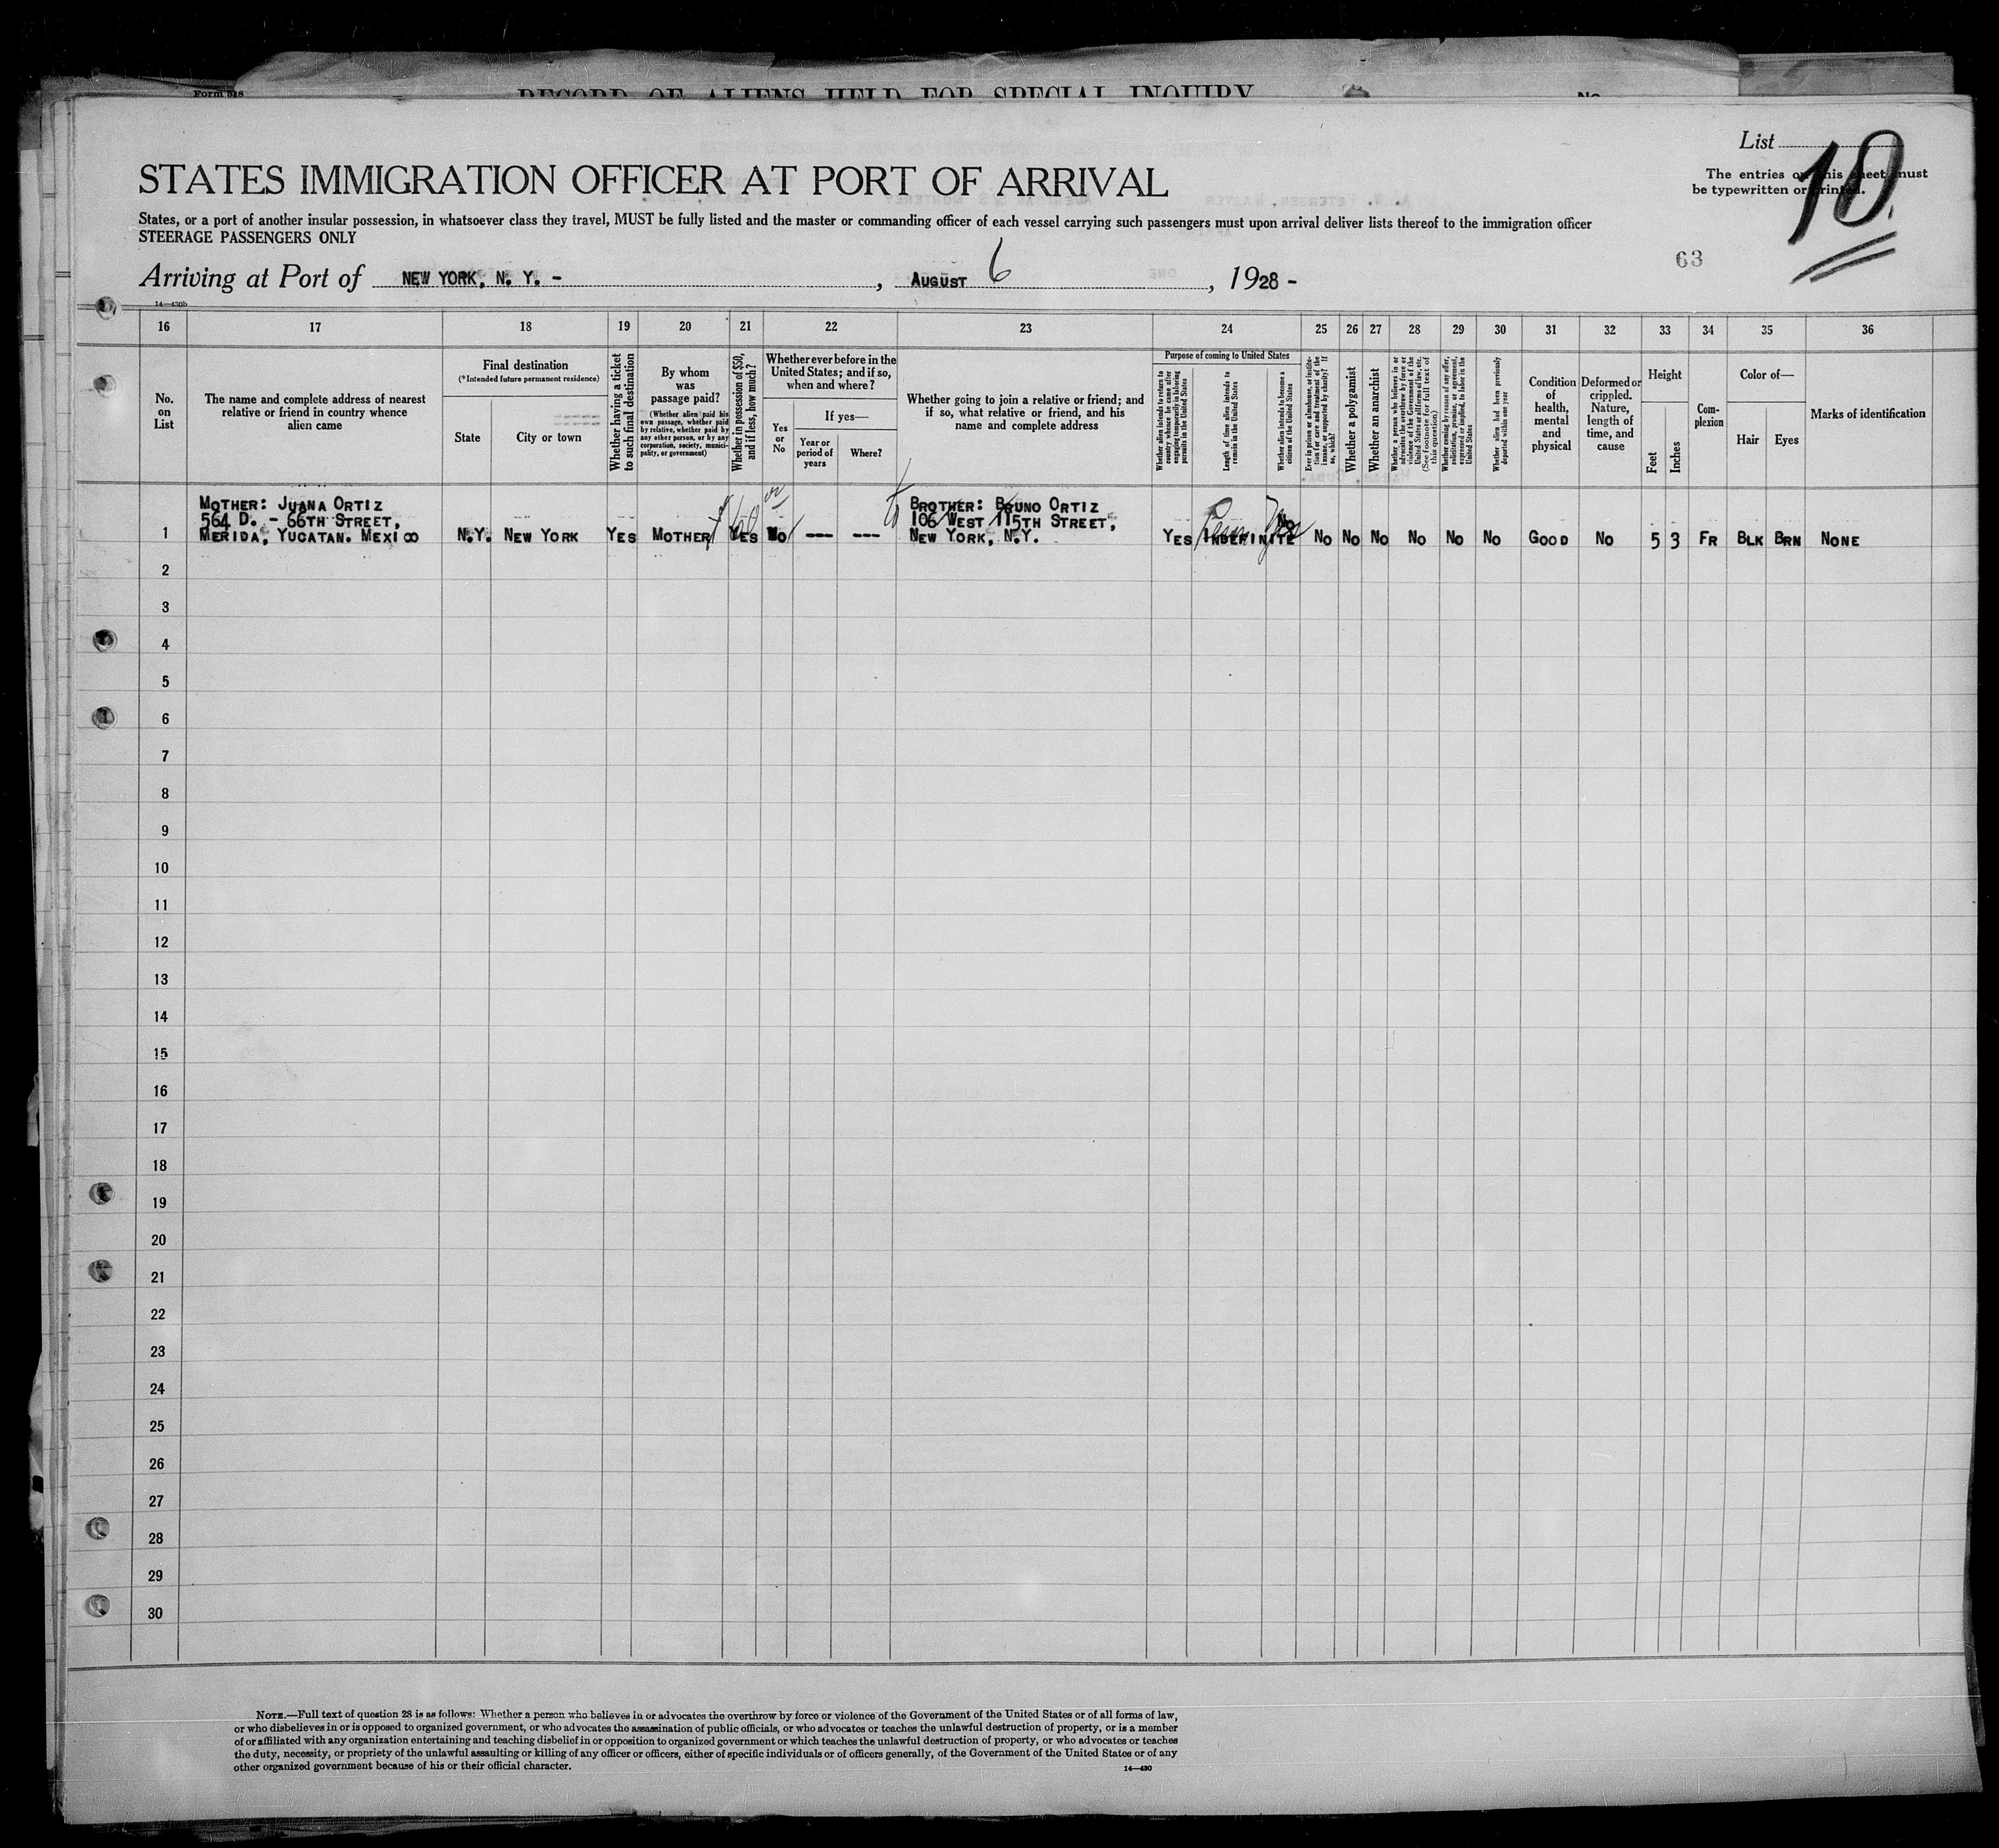 Form 518
RECORD OF ALIENS HELD FOR SPECIAL INQUIRY
No.
List
10
The entries on this sheet must
be typewritten or printed.
STATES IMMIGRATION OFFICER AT PORT OF ARRIVAL
States, or a port of another insular possession, in whatsoever class they travel, MUST be fully listed and the master or commanding officer of each vessel carrying such passengers must upon arrival deliver lists thereof to the immigration officer
STEERAGE PASSENGERS ONLY
63
Arriving at Port of NEW YORK, N. Y. - , AUGUST 6 , 1928 -
14—430b
16 17 18 19 20 21 22 23 24 25 26 27 28 29 30 31 32 33 34 35 36
No.
on
List
The name and complete address of nearest
relative or friend in country whence
alien came
Final destination
(*Intended future permanent residence)
State
City or town
Whether having a ticket
to such final destination
By whom
was
passage paid?
(Whether alien paid his
own passage, whether paid
by relative, whether paid by
any other person, or by any
corporation, society, munici-
pality, or government)
Whether in possession of $50,
and if less, how much?
Whether ever before in the
United States; and if so,
when and where?
Yes
or
No
If yes—
Year or
period of
years
Where?
Whether going to join a relative or friend; and
if so, what relative or friend, and his
name and complete address
Purpose of coming to United States
Whether alien intends to return to
country whence he came after
engaging temporarily in laboring
pursuits in the United States
Length of time alien intends to
remain in the United States
Whether alien intends to become a
citizen of the United States
Ever in prison or almshouse, or institu-
tion for care and treatment of the
insane, or supported by charity? If
so, which?
Whether a polygamist
Whether an anarchist
Whether a person who believes in or
advocates the overthrow by force or
violence of the Government of the
United States or all forms of law, etc.
(See footnote for full text of
this question)
Whether coming by reason of any offer,
solicitation, promise, or agreement,
expressed or implied, to labor in the
United States
Whether alien had been previously
deported within one year
Condition
of
health,
mental
and
physical
Deformed or
crippled.
Nature,
length of
time, and
cause
Height
Feet
Inches
Com-
plexion
Color of—
Hair
Eyes
Marks of identification
MOTHER: JUANA ORTIZ
564 D. - 66TH STREET,
1 MERIDA, YUCATAN. MEXICO N.Y. NEW YORK YES MOTHER YES NO --- ---
BROTHER: BRUNO ORTIZ
106 WEST 115TH STREET,
NEW YORK, N.Y. YES INDEFINITE NO NO NO NO NO NO NO GOOD NO 5 3 FR BLK BRN NONE
$60
Perm Yes
2
3
4
5
6
7
8
9
10
11
12
13
14
15
16
17
18
19
20
21
22
23
24
25
26
27
28
29
30
NOTE.—Full text of question 28 is as follows: Whether a person who believes in or advocates the overthrow by force or violence of the Government of the United States or of all forms of law,
or who disbelieves in or is opposed to organized government, or who advocates the assassination of public officials, or who advocates or teaches the unlawful destruction of property, or is a member
of or affiliated with any organization entertaining and teaching disbelief in or opposition to organized government or which teaches the unlawful destruction of property, or who advocates or teaches
the duty, necessity, or propriety of the unlawful assaulting or killing of any officer or officers, either of specific individuals or of officers generally, of the Government of the United States or of any
other organized government because of his or their official character.
14—430